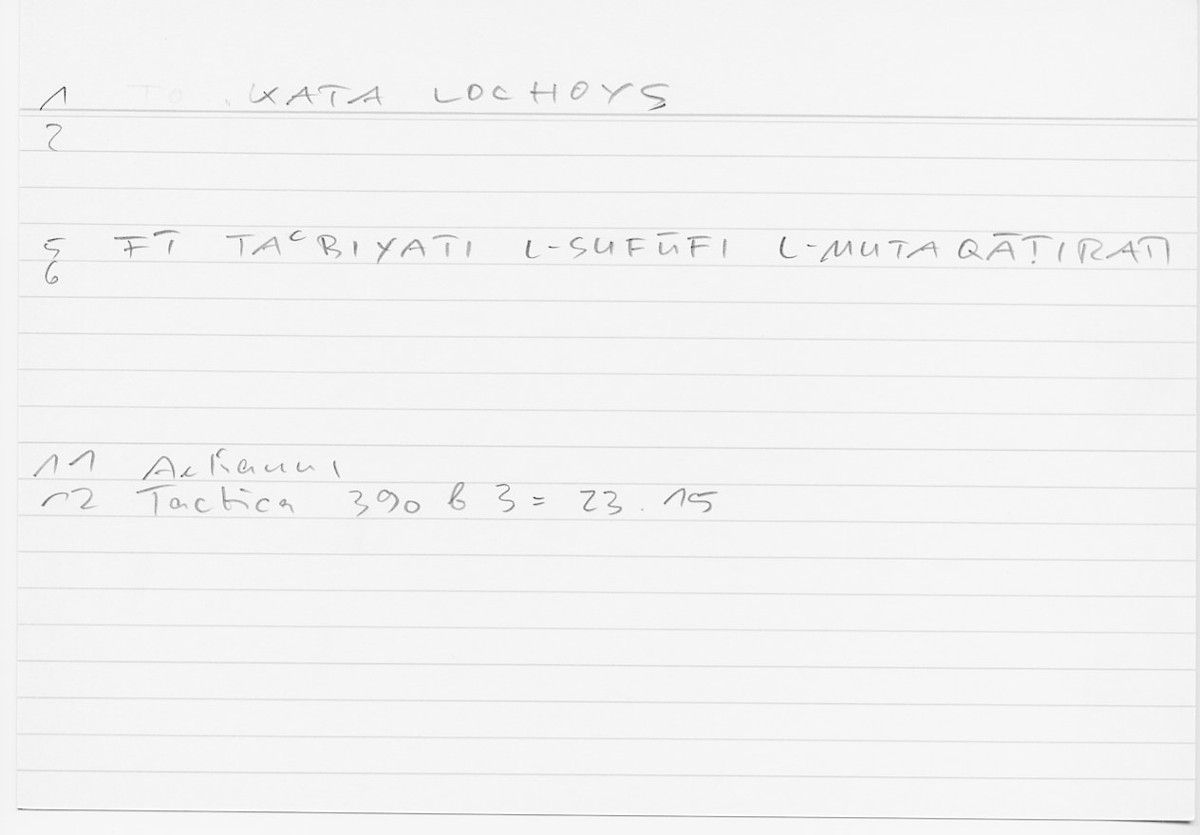 1 KATA LOCHOYS
2
5 FĪ TAʿBIYATI L-SUFŪFI L-MUTAQĀṬIRATI
6
11
12 Tactica 390 b 3 = 23.15